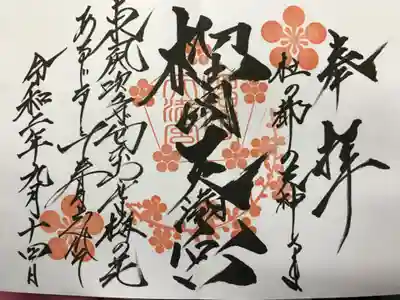 奉拝
杜の都の天神さま
榴岡天満宮
東風吹かば匂ひおこせよ梅の花
あるじなしとて春な忘れそ
令和二年九月十四日